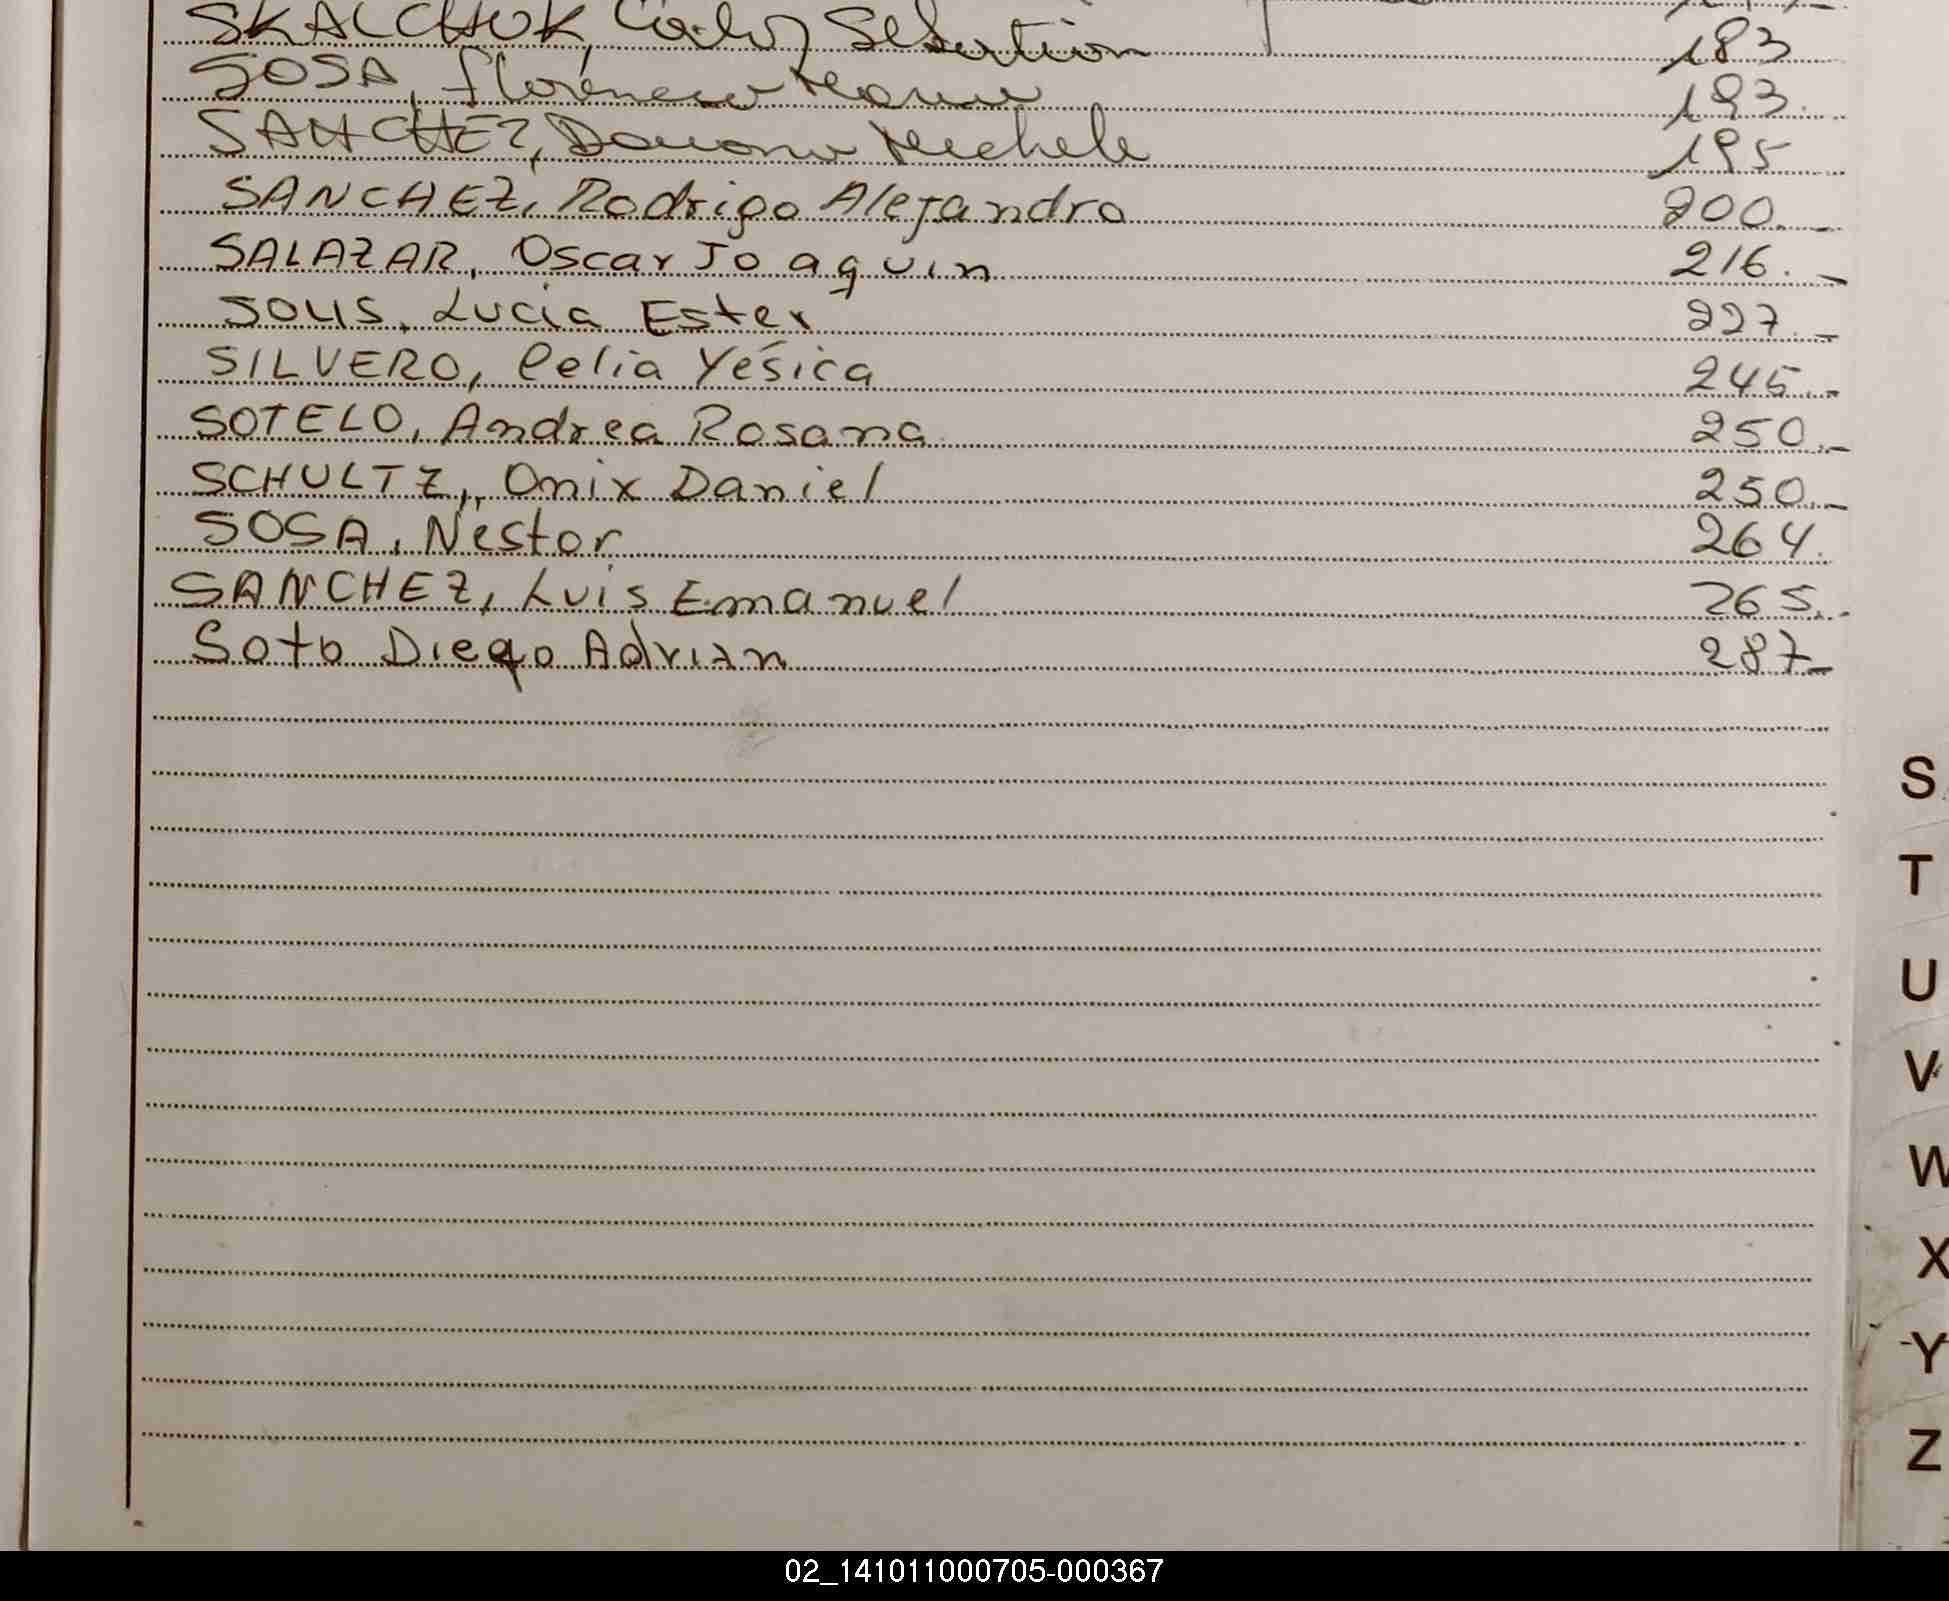 SKALCHUK, Carlos Sebastian 183
SOSA, Florencia Maria 193.
SANCHEZ, Daiana Michele 195
SANCHEZ, Rodrigo Alejandro 200.-
SALAZAR, Oscar Joaquin 216.-
SOLIS, Lucia Ester 227.-
SILVERO, Celia Yesica 245.-
SOTELO, Andrea Rosana 250.-
SCHULTZ, Onix Daniel 250.-
SOSA, Nestor 264.
SANCHEZ, Luis Emanuel 265.-
Soto Diego Adrian 287-
S
T
U
V
W
X
Y
Z
02_141011000705-000367